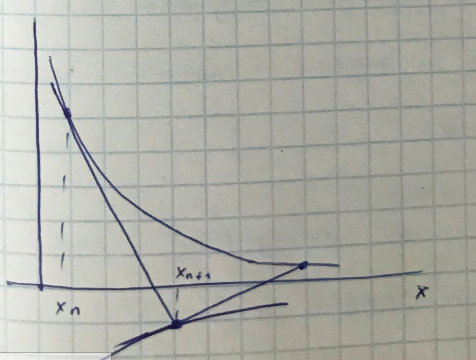 x_{n+1}
x_n
x